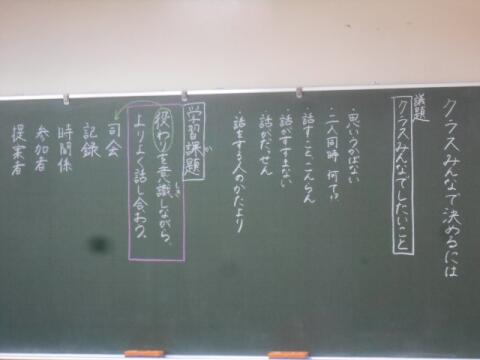 クラスみんなで決めるには
議題
クラスみんなでしたいこと
・思いうかばない
・二人同時 何て!?
・話すこと、こんらん
・話がすすまない
・話がだっせん
・話をする人のかたより
学習課題
かい
役わりを意識しながら、
しき
よりよく話し合おう。
司会
記録
時間係
参加者
提案者